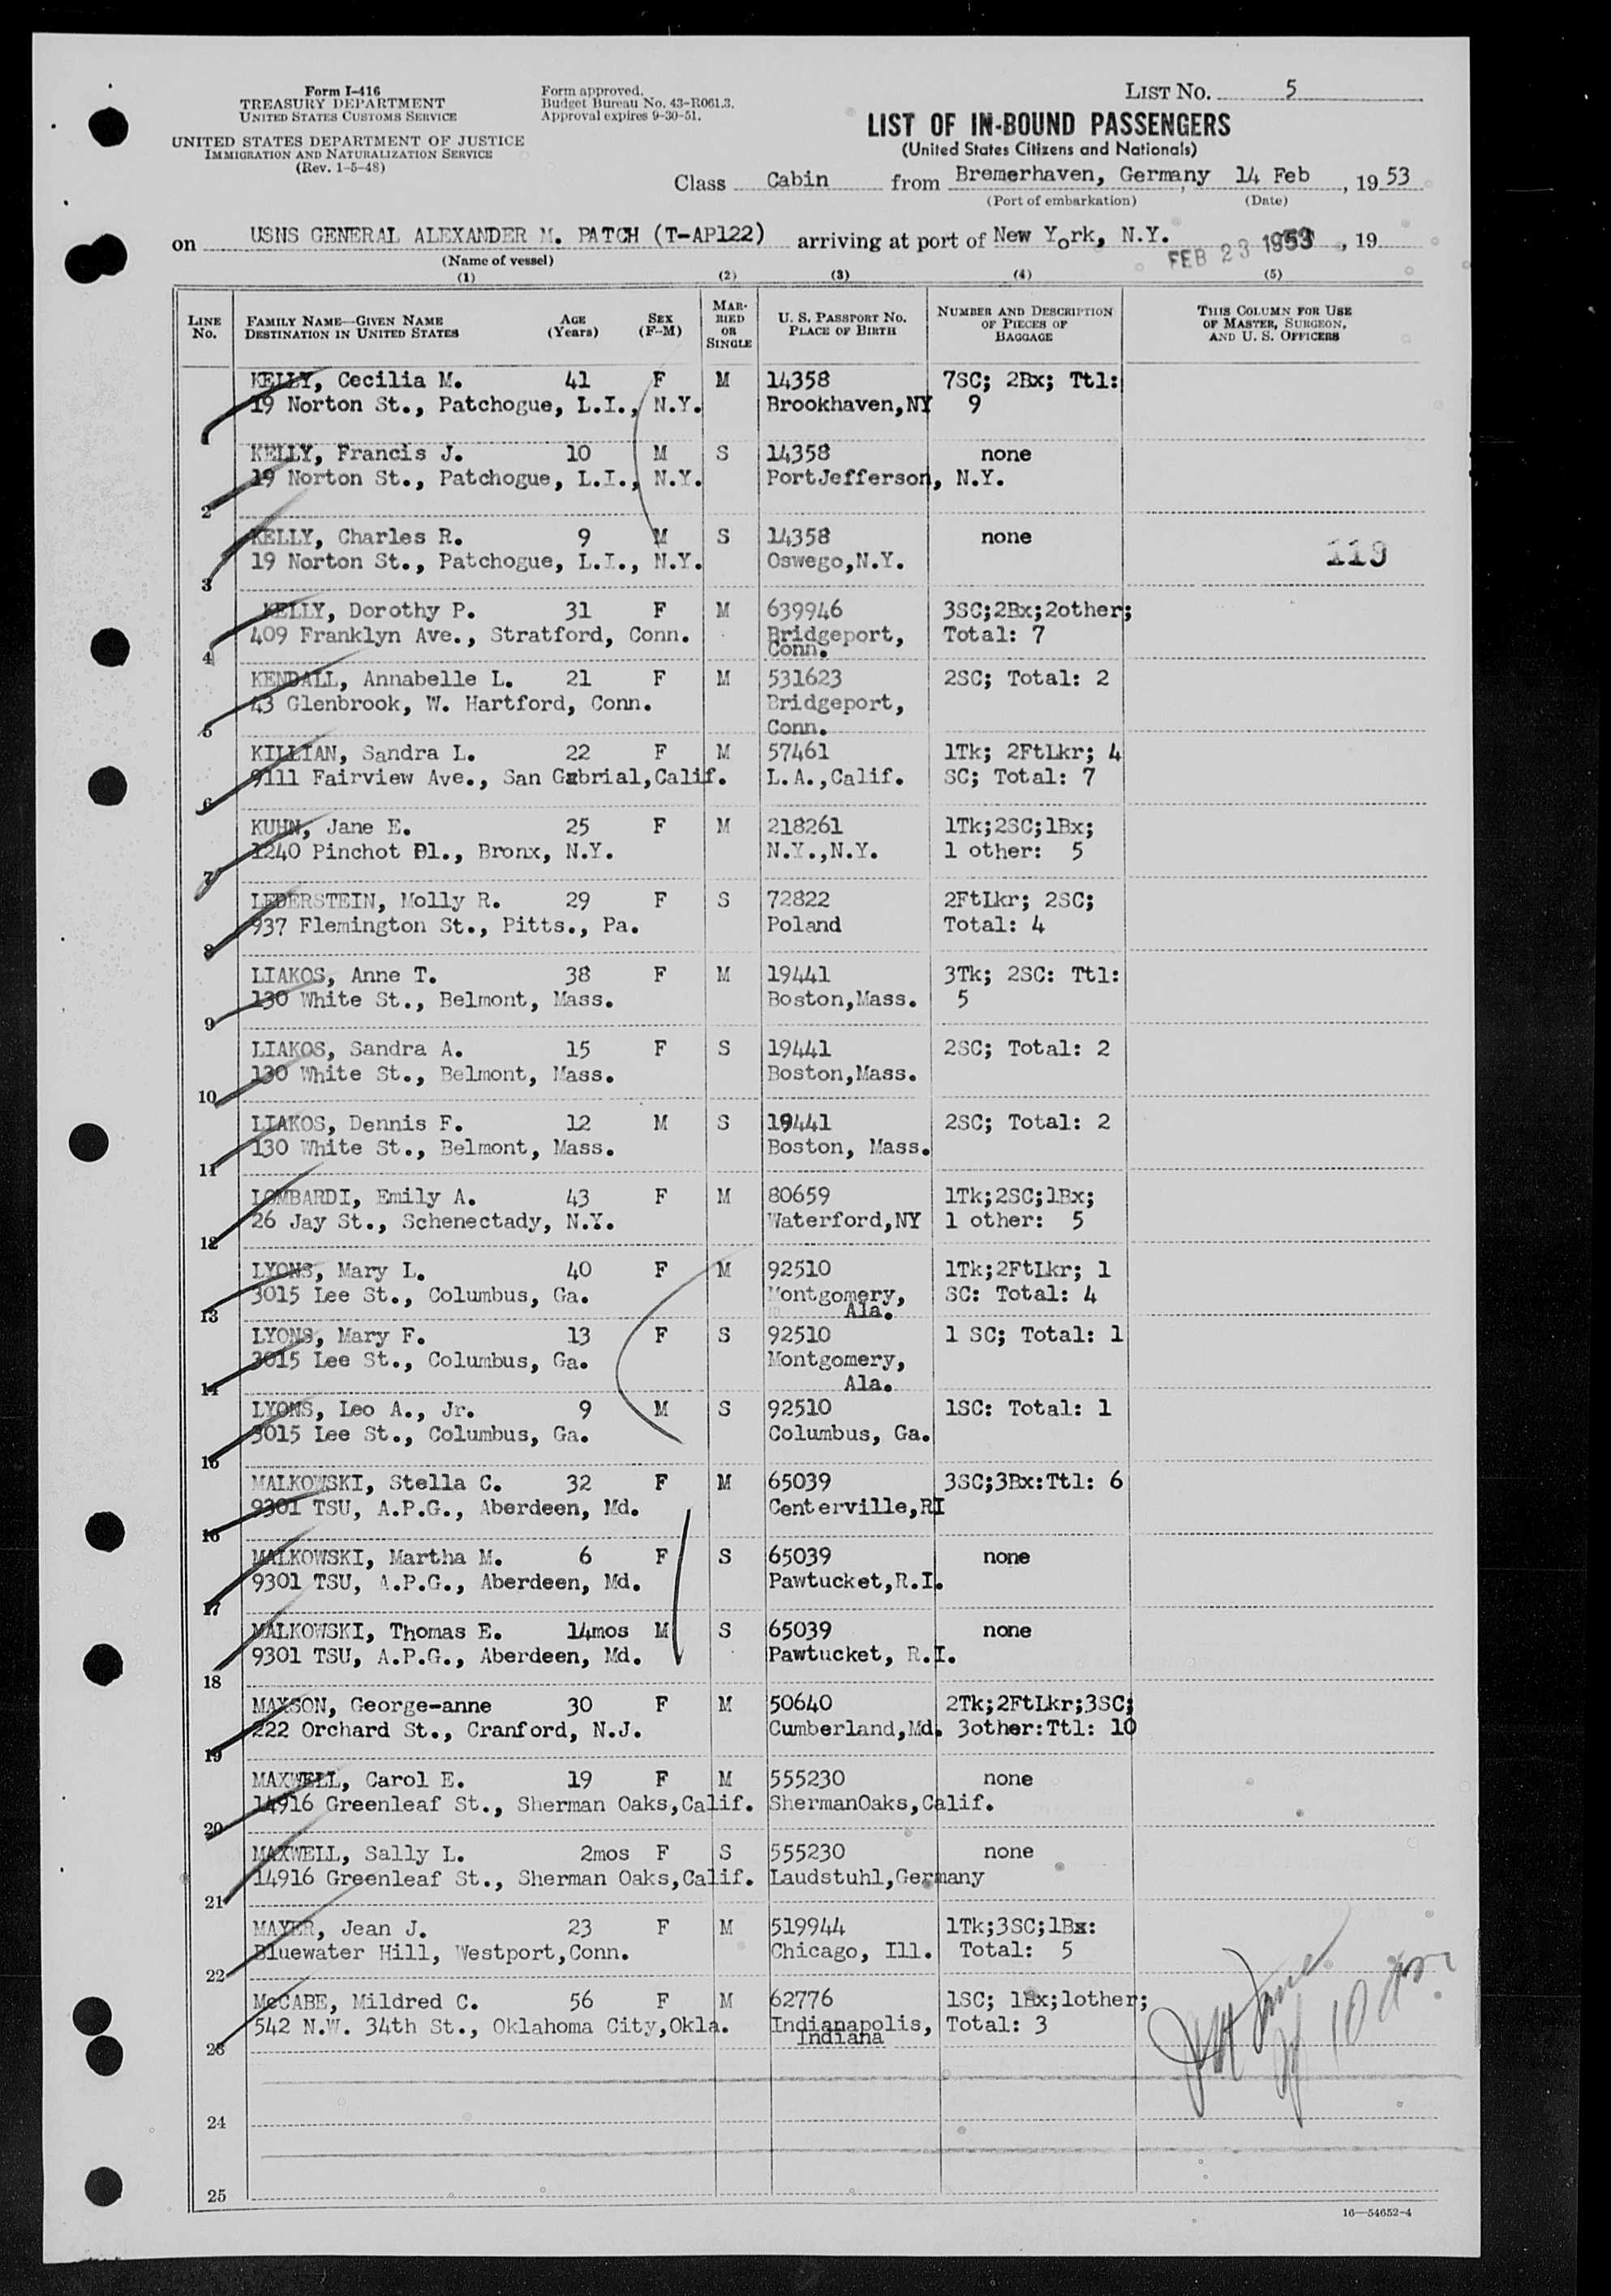 Form I-416
TREASURY DEPARTMENT
UNITED STATES CUSTOMS SERVICE
UNITED STATES DEPARTMENT OF JUSTICE
IMMIGRATION AND NATURALIZATION SERVICE
(Rev. 1-5-48)
Form approved.
Budget Bureau No. 43-R061.3.
Approval expires 9-30-51.
LIST NO. 5
LIST OF IN-BOUND PASSENGERS
(United States Citizens and Nationals)
Class Cabin from Bremerhaven, Germany, 14 Feb, 1953
(Port of embarkation) (Date)
on USNS GENERAL ALEXANDER M. PATCH (T-AP122) arriving at port of New York, N.Y. FEB 23 1953, 19
(Name of vessel)
(1) (2) (3) (4) (5)
LINE NO. FAMILY NAME—GIVEN NAME DESTINATION IN UNITED STATES AGE (Years) SEX (F-M) MARRIED OR SINGLE U. S. PASSPORT NO. PLACE OF BIRTH NUMBER AND DESCRIPTION OF PIECES OF BAGGAGE THIS COLUMN FOR USE OF MASTER, SURGEON, AND U. S. OFFICERS
KELLY, Cecilia M. 41 F M 14358 7SC; 2Bx; Ttl:
19 Norton St., Patchogue, L.I., N.Y. Brookhaven,NY 9
1
KELLY, Francis J. 10 M S 14358 none
19 Norton St., Patchogue, L.I., N.Y. PortJefferson, N.Y.
2
KELLY, Charles R. 9 M S 14358 none
19 Norton St., Patchogue, L.I., N.Y. Oswego,N.Y. 119
3
KELLY, Dorothy P. 31 F M 639946 3SC;2Bx;2other;
409 Franklyn Ave., Stratford, Conn. Bridgeport, Total: 7
Conn.
4
KENDALL, Annabelle L. 21 F M 531623 2SC; Total: 2
43 Glenbrook, W. Hartford, Conn. Bridgeport,
5 Conn.
KILLIAN, Sandra L. 22 F M 57461 1Tk; 2FtLkr; 4
9111 Fairview Ave., San Gabrial,Calif. L.A.,Calif. SC; Total: 7
6
KUHN, Jane E. 25 F M 218261 1Tk;2SC;1Bx;
1240 Pinchot Pl., Bronx, N.Y. N.Y.,N.Y. 1 other: 5
7
LEDERSTEIN, Molly R. 29 F S 72822 2FtLkr; 2SC;
937 Flemington St., Pitts., Pa. Poland Total: 4
8
LIAKOS, Anne T. 38 F M 19441 3Tk; 2SC: Ttl:
130 White St., Belmont, Mass. Boston,Mass. 5
9
LIAKOS, Sandra A. 15 F S 19441 2SC; Total: 2
130 White St., Belmont, Mass. Boston,Mass.
10
LIAKOS, Dennis F. 12 M S 19441 2SC; Total: 2
130 White St., Belmont, Mass. Boston, Mass.
11
LOMBARDI, Emily A. 43 F M 80659 1Tk;2SC;1Bx;
26 Jay St., Schenectady, N.Y. Waterford,NY 1 other: 5
12
LYONS, Mary L. 40 F M 92510 1Tk;2FtLkr; 1
3015 Lee St., Columbus, Ga. Montgomery, SC: Total: 4
13 Ala.
LYONS, Mary F. 13 F S 92510 1 SC; Total: 1
3015 Lee St., Columbus, Ga. Montgomery,
14 Ala.
LYONS, Leo A., Jr. 9 M S 92510 1SC: Total: 1
3015 Lee St., Columbus, Ga. Columbus, Ga.
15
MALKOWSKI, Stella C. 32 F M 65039 3SC;3Bx:Ttl: 6
9301 TSU, A.P.G., Aberdeen, Md. Centerville,RI
16
MALKOWSKI, Martha M. 6 F S 65039 none
9301 TSU, A.P.G., Aberdeen, Md. Pawtucket,R.I.
17
MALKOWSKI, Thomas E. 14mos M S 65039 none
9301 TSU, A.P.G., Aberdeen, Md. Pawtucket, R.I.
18
MAXSON, George-anne 30 F M 50640 2Tk;2FtLkr;3SC;
222 Orchard St., Cranford, N.J. Cumberland,Md. 3other:Ttl: 10
19
MAXWELL, Carol E. 19 F M 555230 none
14916 Greenleaf St., Sherman Oaks,Calif. ShermanOaks,Calif.
20
MAXWELL, Sally L. 2mos F S 555230 none
14916 Greenleaf St., Sherman Oaks,Calif. Laudstuhl,Germany
21
MAYER, Jean J. 23 F M 519944 1Tk;3SC;1Bx:
Bluewater Hill, Westport,Conn. Chicago, Ill. Total: 5
22
McCABE, Mildred C. 56 F M 62776 1SC; 1Bx;1other;
542 N.W. 34th St., Oklahoma City,Okla. Indianapolis, Total: 3
Indiana
23
24
25
16—54652-4